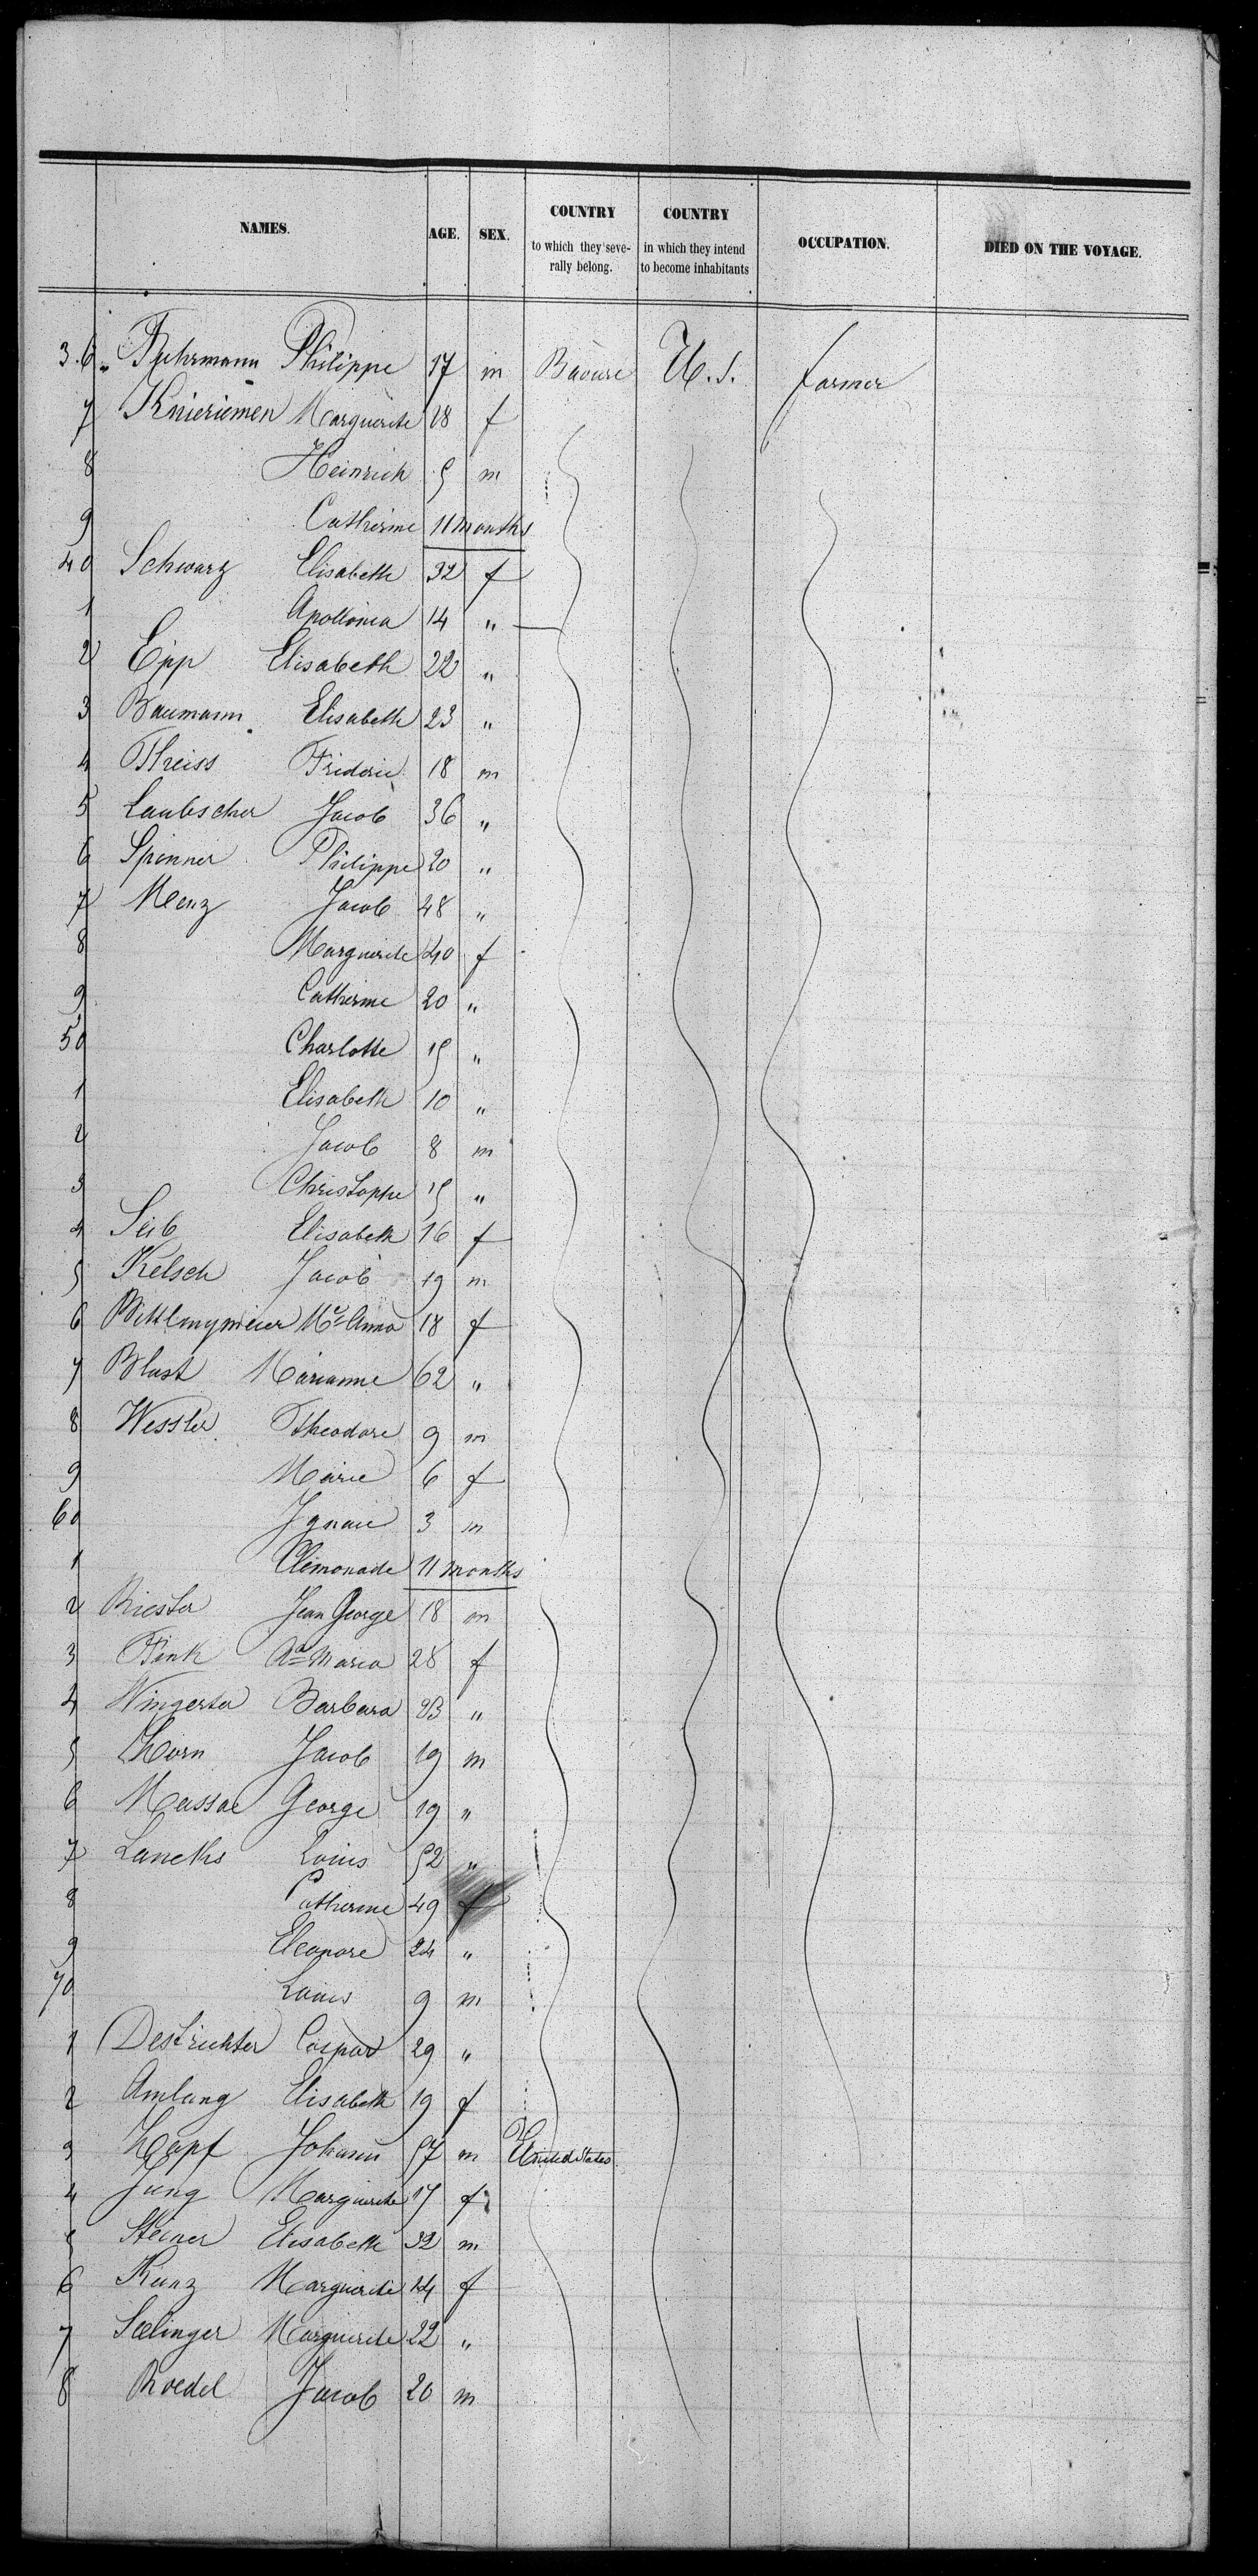 NAMES. AGE. SEX. COUNTRY to which they severally belong. COUNTRY in which they intend to become inhabitants OCCUPATION. DIED ON THE VOYAGE.
36 Fuhrmann Philippe 17 m Baviere U.S. farmer
7 Knieriemen Marguerite 28 f
8 Heinrich 5 m
9 Catherine 11 months
40 Schwarz Elisabeth 32 f
1 Apollonia 14 "
2 Epp Elisabeth 22 "
3 Baumann Elisabeth 23 "
4 Theiss Frideric 18 m
5 Laubscher Jacob 36 "
6 Spinner Philippe 20 "
7 Menz Jacob 48 "
8 Marguerite 40 f
9 Catherine 20 "
50 Charlotte 15 "
1 Elisabeth 10 "
2 Jacob 8 m
3 Christophe 15 "
4 Seib Elisabeth 16 f
5 Kelsch Jacob 19 m
6 Mie Anna 18 f
7 Blast Marianne 62 "
8 Wessler Theodore 9 m
9 Marie 6 f
60 Ignace 3 m
1 Clemonade 11 months
2 Riester Jean George 18 m
3 Fink Aa Maria 28 f
4 Wingerter Barbara 23 "
5 Horn Jacob 19 m
6 Massae George 19 "
7 Laneths Louis 52 "
8 Catherine 49 f
9 Eleonore 24 "
70 Louis 9 m
1 Destrichter Caspar 29 "
2 Amlung Elisabeth 19 f
3 Hopf Johann 57 m United States
4 Jung Marguerite 17 f
5 Steiner Elisabeth 32 m
6 Kunz Marguerite 24 f
7 Seelinger Marguerite 22 "
8 Roedel Jacob 20 m